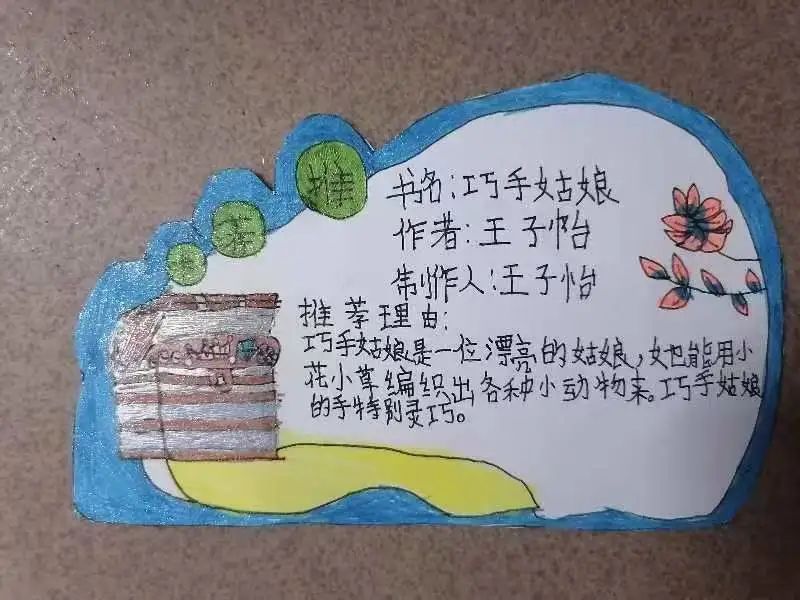 推
荐
书名:巧手姑娘
作者:王子怡
制作人:王子怡
推荐理由:
巧手姑娘是一位漂亮的姑娘,她能用小
花小草编织出各种小动物来。巧手姑娘
的手特别灵巧。